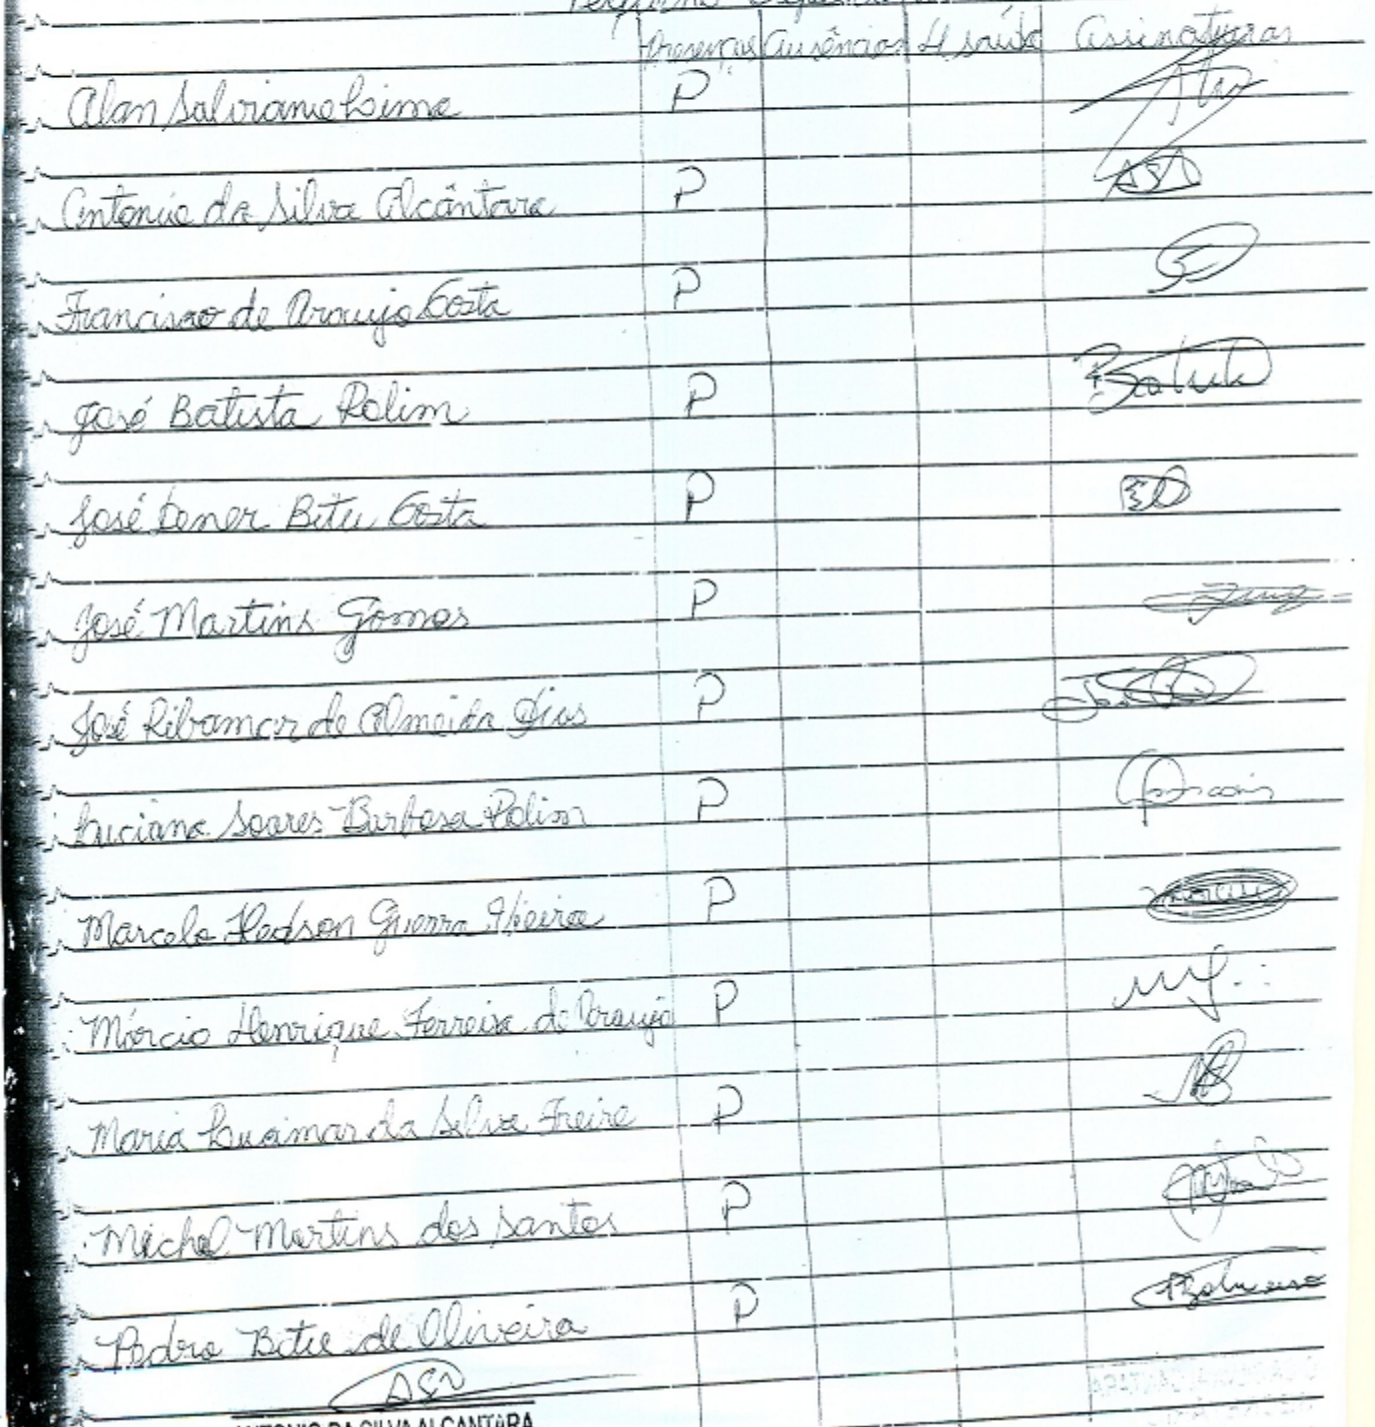 Presenças Ausências L. saúde Assinaturas
Alan Salviano Lima P
Antonio da Silva Alcântara P ASA
Francisco de Araujo Costa P
José Batista Rolim P Batista
José Dener Bitu Costa P
José Martins Gomes P
José Ribamar de Almeida Dias P
Luciana Soares Barbosa Rolim P
Marcelo Hedson Guerra P
Márcio Henrique Ferreira de Araujo P
Maria Lucimar da Silva Freire P
Michel Martins dos Santos P
Pedro Bitu de Oliveira P
ANTONIO DA SILVA ALCANTARA